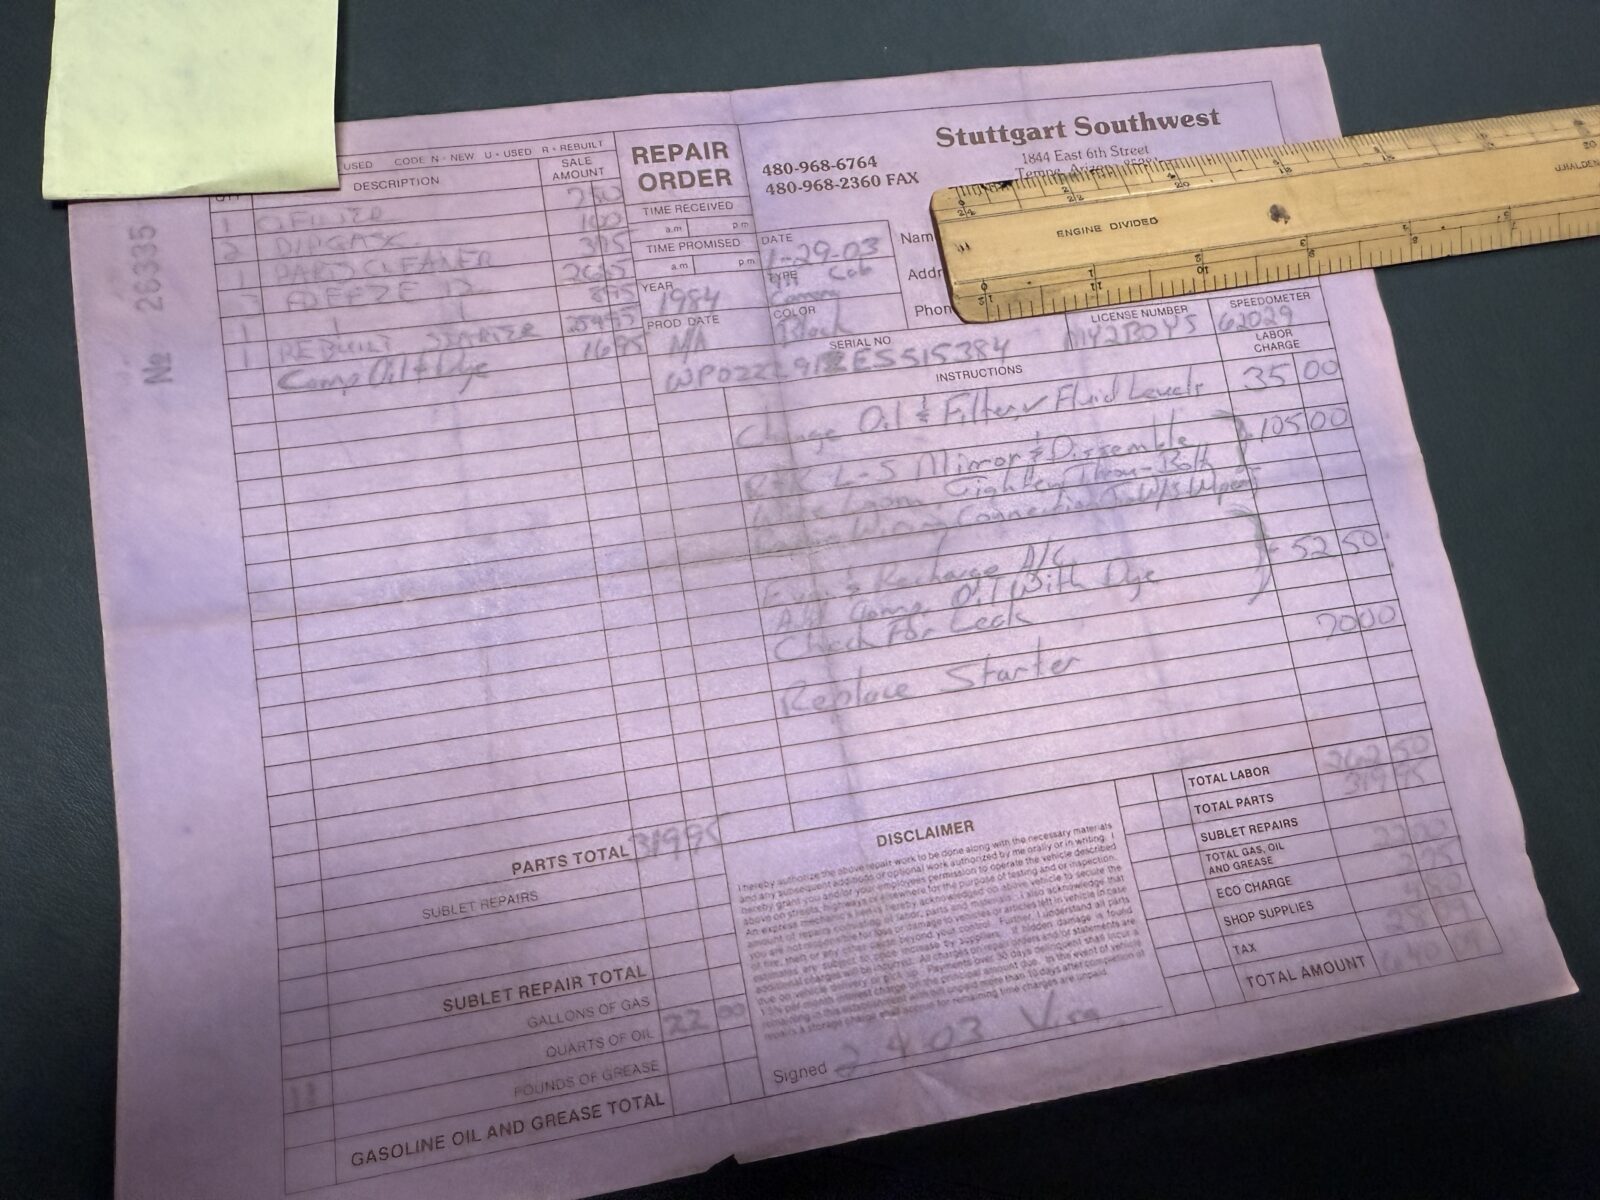 USED CODE N - NEW U - USED R - REBUILT
DESCRIPTION
SALE AMOUNT
1 O FILTER 750
2 DIP GASK 100
1 PARTS CLEANER 395
3 FREEZE 12 2625
1 895
1 REBUILT STARTER
Comp Oil + Dye 1695
№ 26335
REPAIR ORDER
480-968-6764
480-968-2360 FAX
Stuttgart Southwest
1844 East 6th Street
Tempe, Arizona
TIME RECEIVED
a.m p.m
TIME PROMISED
a.m p.m
YEAR
1984
PROD DATE
N/A
DATE
1-29-03
TYPE
911 Cab
Carrera
COLOR
Black
Nam
Addr
Phon
SERIAL NO.
WP0ZZZ91ZES515384
LICENSE NUMBER
MY2BOYS
SPEEDOMETER
62029
INSTRUCTIONS
LABOR CHARGE
Change Oil & Filter, ✓ Fluid Levels 35 00
R&R L-S Mirror & Dissemble 105 00
Wire Loom, Tighten Thru-Bolt
Wiring Connection
Evac & Recharge A/C 52 50
Add Comp. Oil With Dye
Check For Leak
Replace Starter 70 00
PARTS TOTAL 319 95
SUBLET REPAIRS
SUBLET REPAIR TOTAL
GALLONS OF GAS
11 QUARTS OF OIL 22 00
POUNDS OF GREASE
GASOLINE OIL AND GREASE TOTAL
DISCLAIMER
I hereby authorize the above repair work to be done along with the necessary materials
and any subsequent additions or optional work authorized by me orally or in writing. I
hereby grant you and/or your employees permission to operate the vehicle described
above on streets, highways or elsewhere for the purpose of testing and/or inspection.
An express mechanic's lien is hereby acknowledged on above vehicle to secure the
amount of repairs consisting of labor, parts and materials. I also acknowledge that
you are not responsible for loss or damage to vehicles or articles left in vehicle in case
of fire, theft or any other cause beyond your control. Further, I understand all parts
estimates are subject to price increase by suppliers. If hidden damage is found
additional charges will be incurred. All charges on repair orders and/or statements are
due on vehicle delivery or pick-up. Payments over 30 days delinquent shall incur a
Signed 2-4-03 Visa
TOTAL LABOR 262 50
TOTAL PARTS 319 95
SUBLET REPAIRS
TOTAL GAS, OIL AND GREASE 22 00
ECO CHARGE
SHOP SUPPLIES
TAX
TOTAL AMOUNT
ENGINE DIVIDED